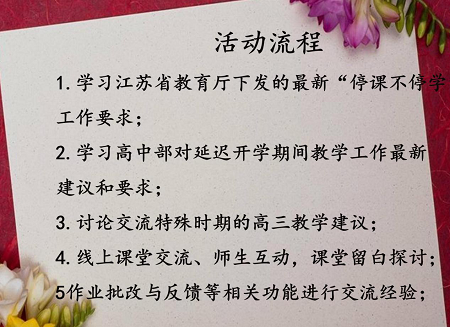 活动流程
1.学习江苏省教育厅下发的最新“停课不停学
工作要求；
2.学习高中部对延迟开学期间教学工作最新
建议和要求；
3.讨论交流特殊时期的高三教学建议；
4.线上课堂交流、师生互动，课堂留白探讨；
5作业批改与反馈等相关功能进行交流经验；